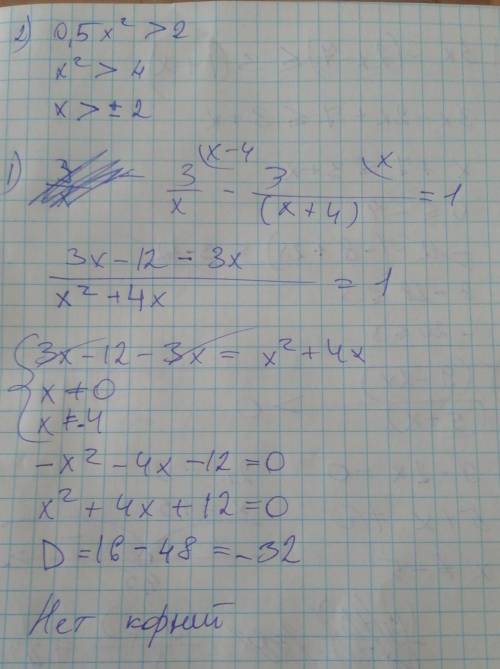 2) 0,5x² > 2
x² > 4
x > ± 2
1) 3/x (x-4 - 3/(x+4) (x = 1
3x-12-3x / x²+4x = 1
{ 3x-12-3x = x²+4x
x ≠ 0
x ≠ -4
-x²-4x-12=0
x²+4x+12=0
D=16-48=-32
Нет корней